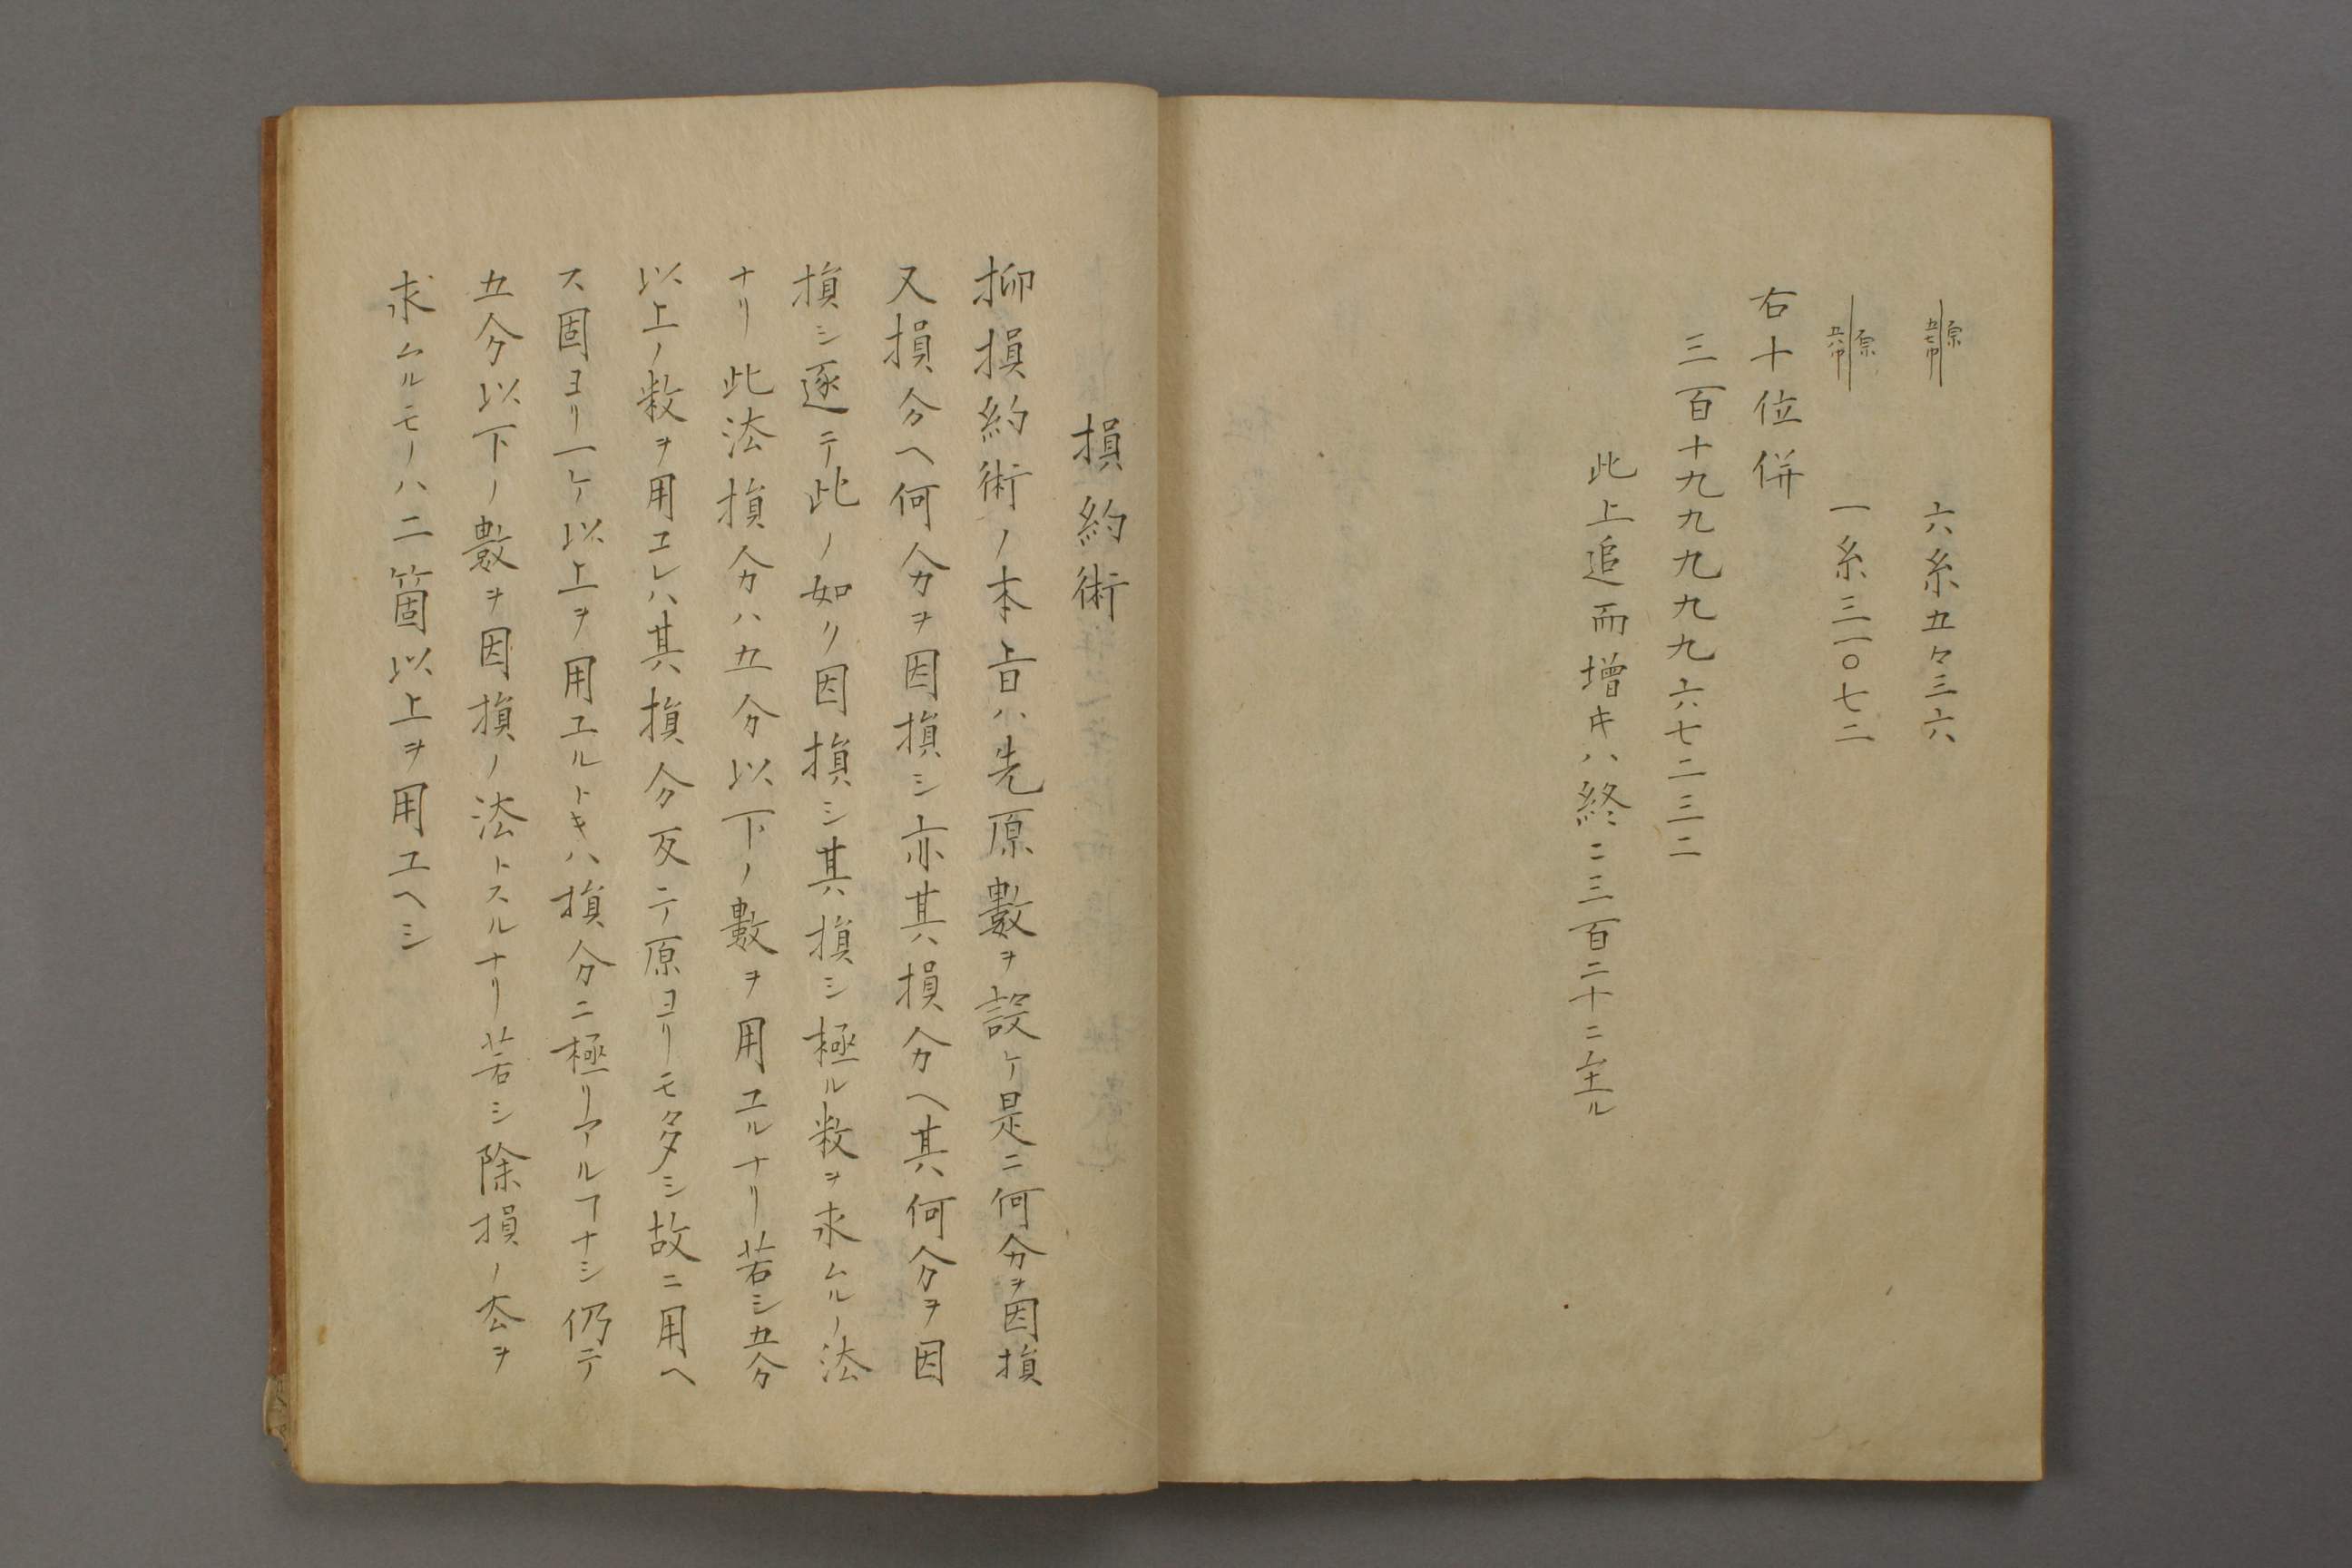 原 五七巾 六糸五々三六
原 五八巾 一糸三一〇七二
右十位併
三百十九九九九九六七二三二
此上追而増キハ終ニ三百二十ニ至ル
損約術
抑損約術ノ本旨ハ先原數ヲ設ケ是ニ何分ヲ因損
又損分ヘ何分ヲ因損シ亦其損分ヘ其何分ヲ因
損シ逐テ此ノ如ク因損シ其損シ極ル数ヲ求ムルノ法
ナリ此法損分ハ五分以下ノ數ヲ用ユルナリ若シ五分
以上ノ数ヲ用エレハ其損分反テ原ヨリモ多シ故ニ用ヘ
ス固ヨリ一ケ以上ヲ用エルトキハ損分ニ極リアルヿナシ仍テ
五分以下ノ數ヲ因損ノ法トスルナリ若シ除損ノ厺ヲ
求ムルモノハ二箇以上ヲ用エヘシ